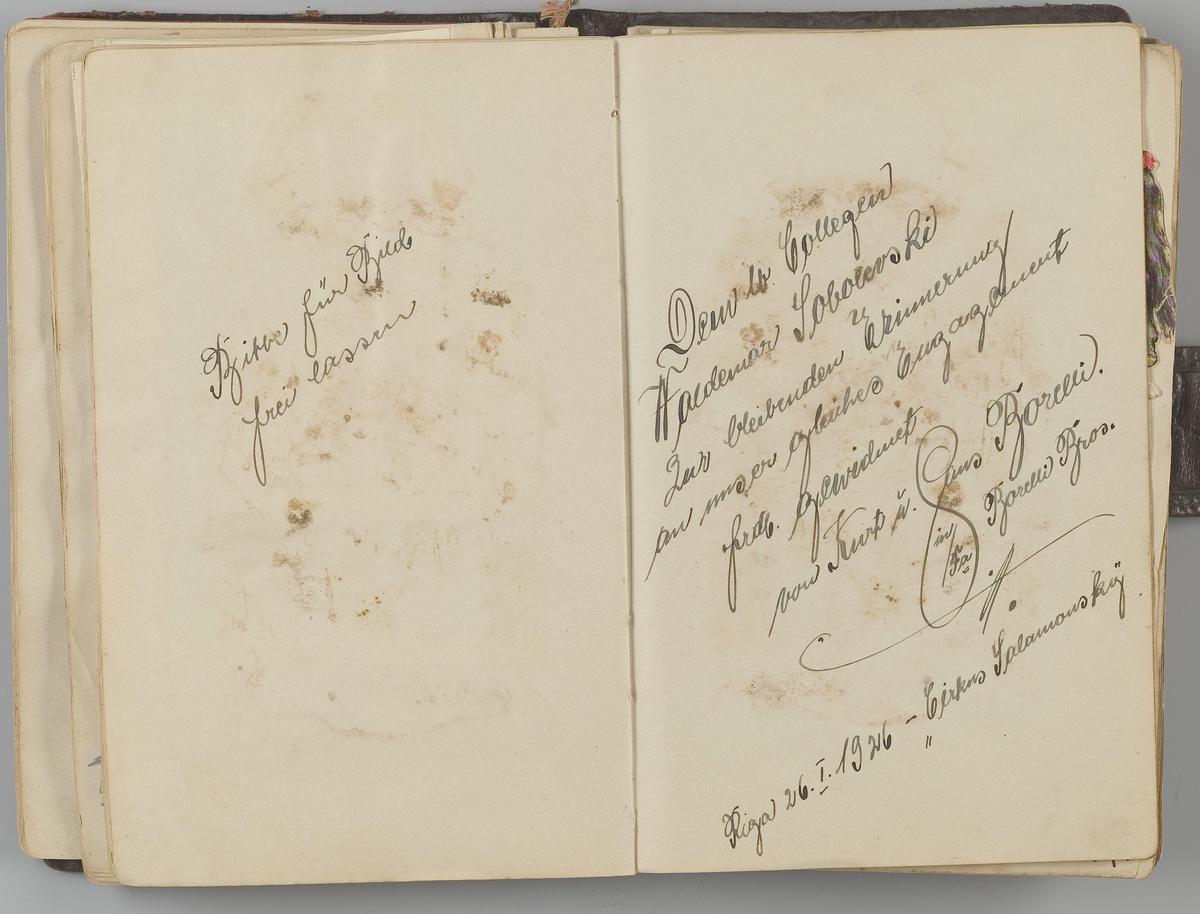 Bitte für Bild
frei lassen
Dem lb. Collegen
Waldemar Sobolevski
zur bleibenden Erinnerung
an unser gleiches Engagement
frdl. gewidmet
von Kurt u. Hans Borelli.
in Fa Borelli Bros.
Riga 26.I.1926 – Cirkus Salamonsky"